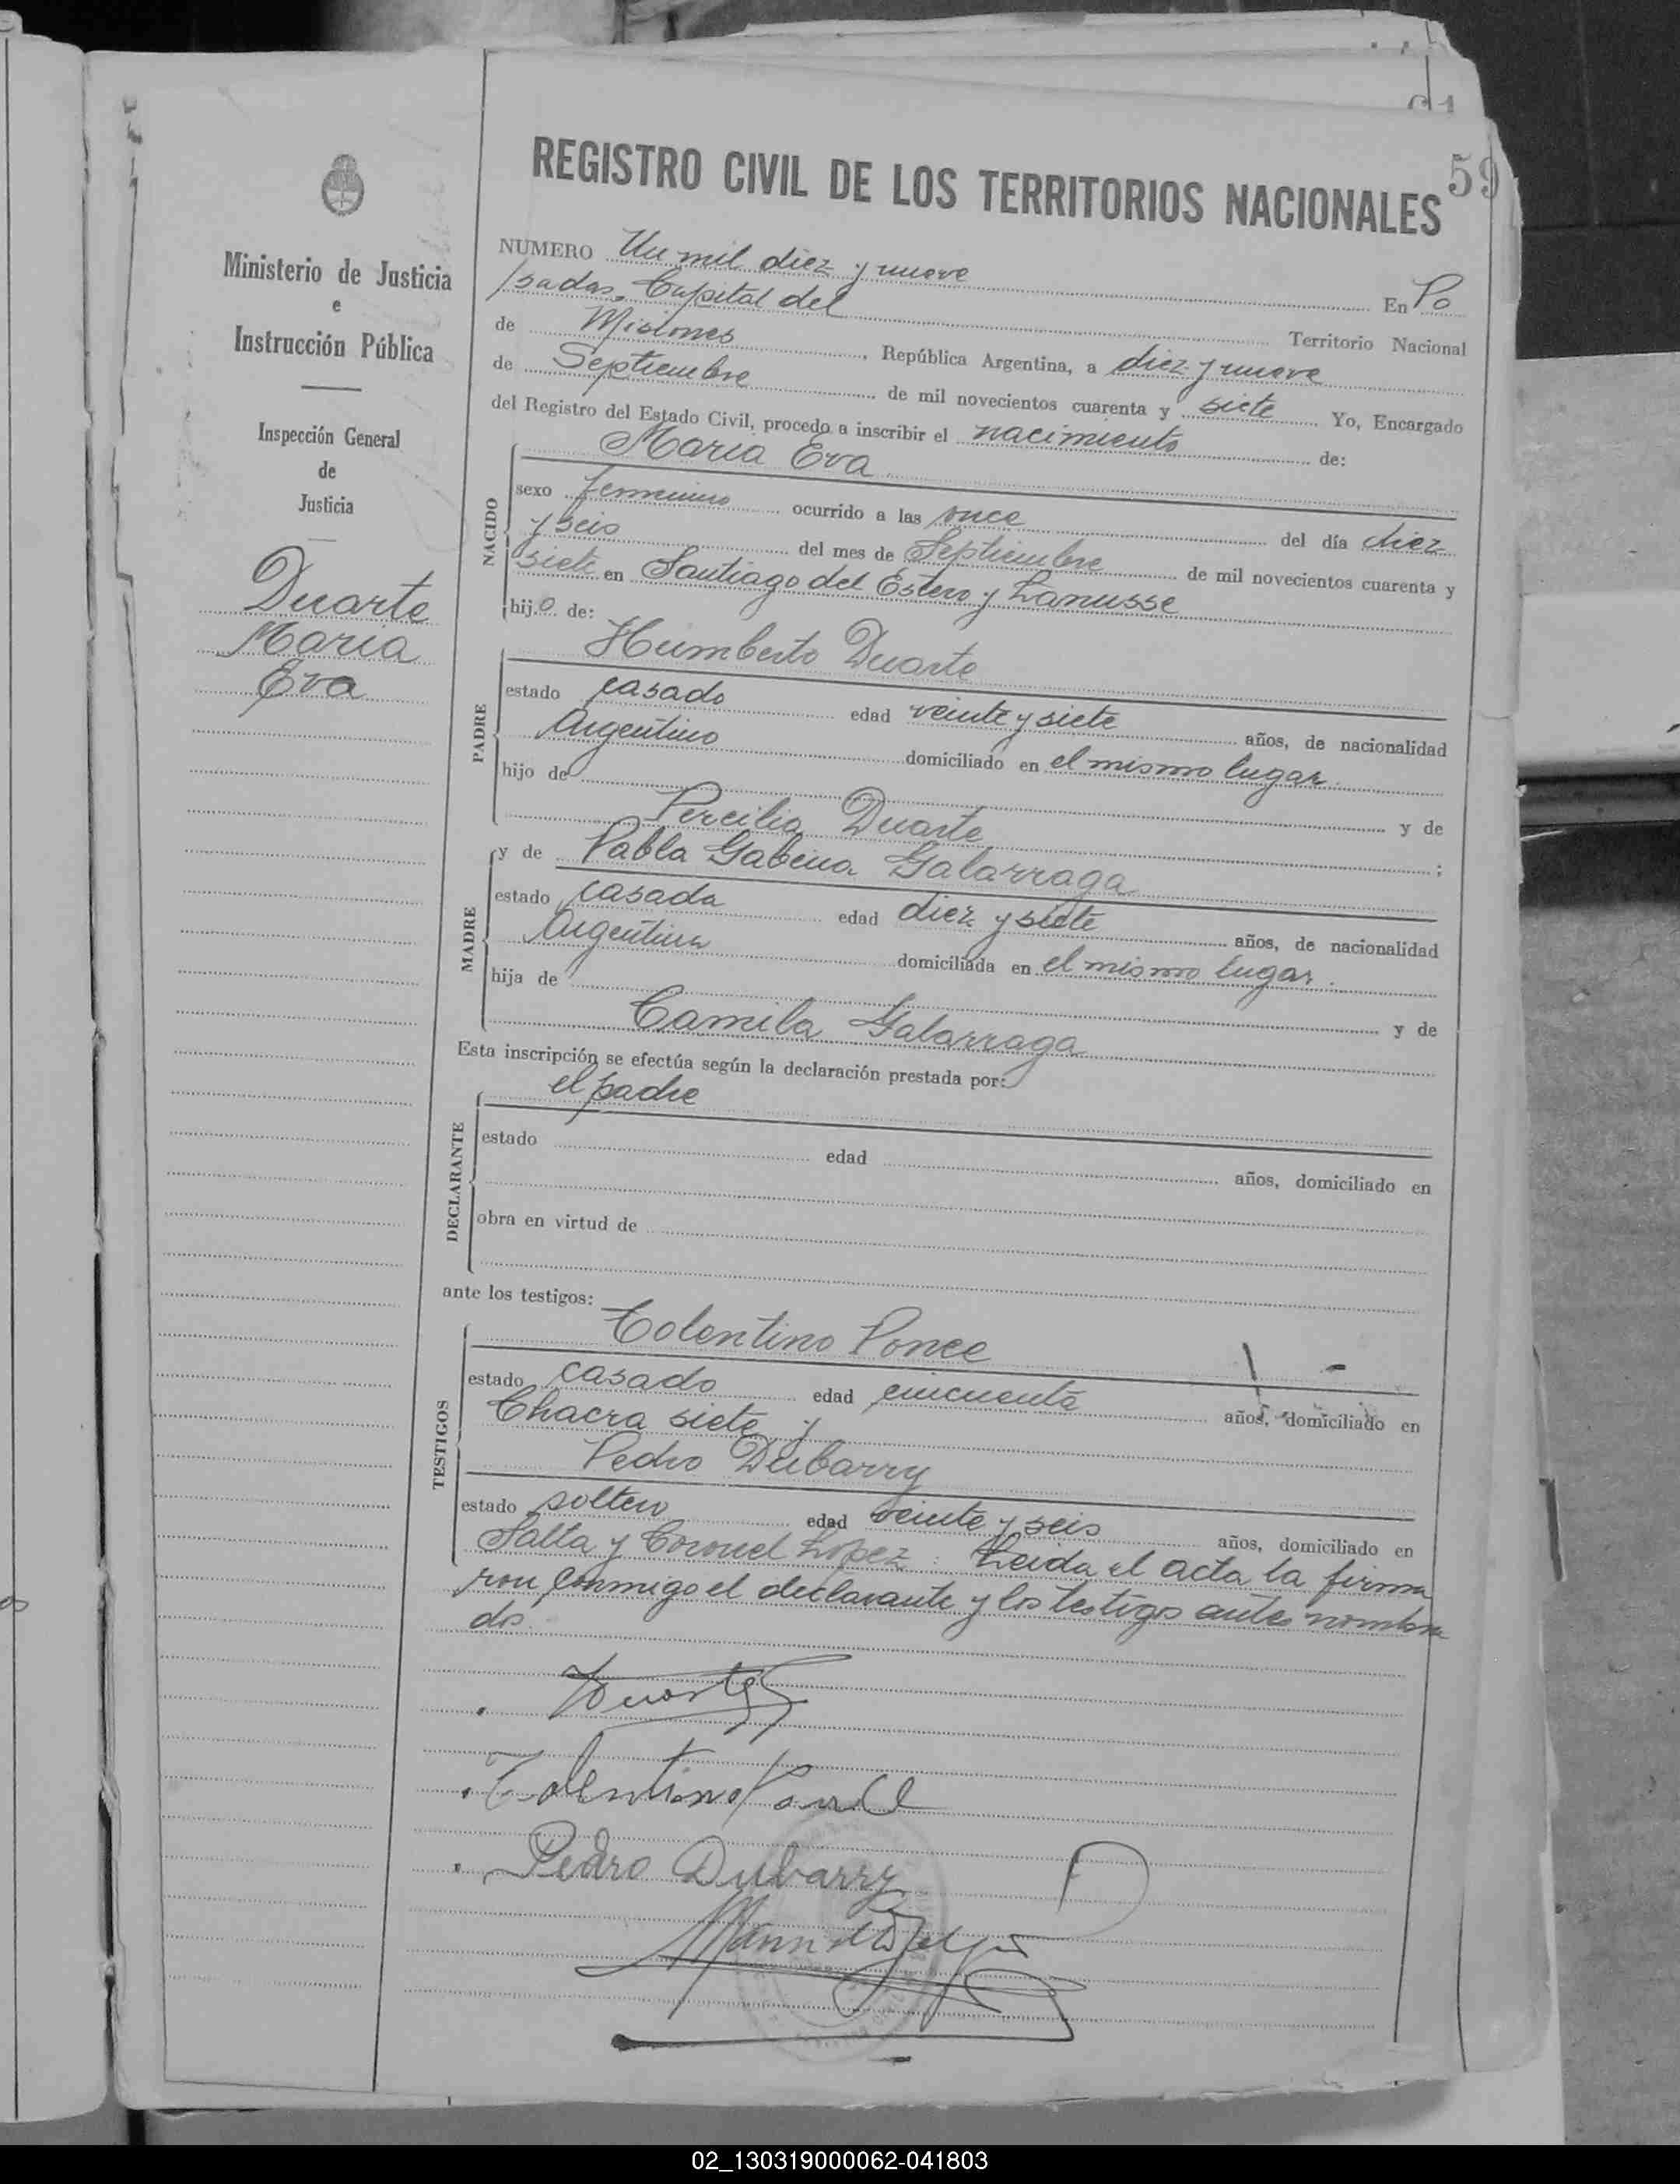 59
REGISTRO CIVIL DE LOS TERRITORIOS NACIONALES
Ministerio de Justicia
e
Instrucción Pública
Inspección General
de
Justicia
Duarte
Maria
Eva
NUMERO Un mil diez y nueve En Po
sadas, Capital del Territorio Nacional
de Misiones, República Argentina, a diez y nueve
de Septiembre de mil novecientos cuarenta y siete Yo, Encargado
del Registro del Estado Civil, procedo a inscribir el nacimiento de:
Maria Eva
NACIDO
sexo femenino ocurrido a las once del día diez
y seis del mes de Septiembre de mil novecientos cuarenta y
siete en Santiago del Estero y Lanusse
hij o de:
Humberto Duarte
PADRE
estado casado edad veinte y siete años, de nacionalidad
Argentino domiciliado en el mismo lugar.
hijo de y de
Percilia Duarte ;
y de Pabla Gabina Galarraga
MADRE
estado casada edad diez y siete años, de nacionalidad
Argentina domiciliada en el mismo lugar.
hija de y de
Camila Galarraga
Esta inscripción se efectúa según la declaración prestada por:
el padre
DECLARANTE
estado edad años, domiciliado en
obra en virtud de
ante los testigos:
Tolentino Ponce
TESTIGOS
estado casado edad cincuenta años, domiciliado en
Chacra siete y
Pedro Dubarry
estado soltero edad veinte y seis años, domiciliado en
Salta y Coronel Lopez. Leida el acta la firma
ron conmigo el declarante y los testigos antes nombra
dos.
Duarte
Tolentino Ponce
Pedro Dubarry
02_130319000062-041803